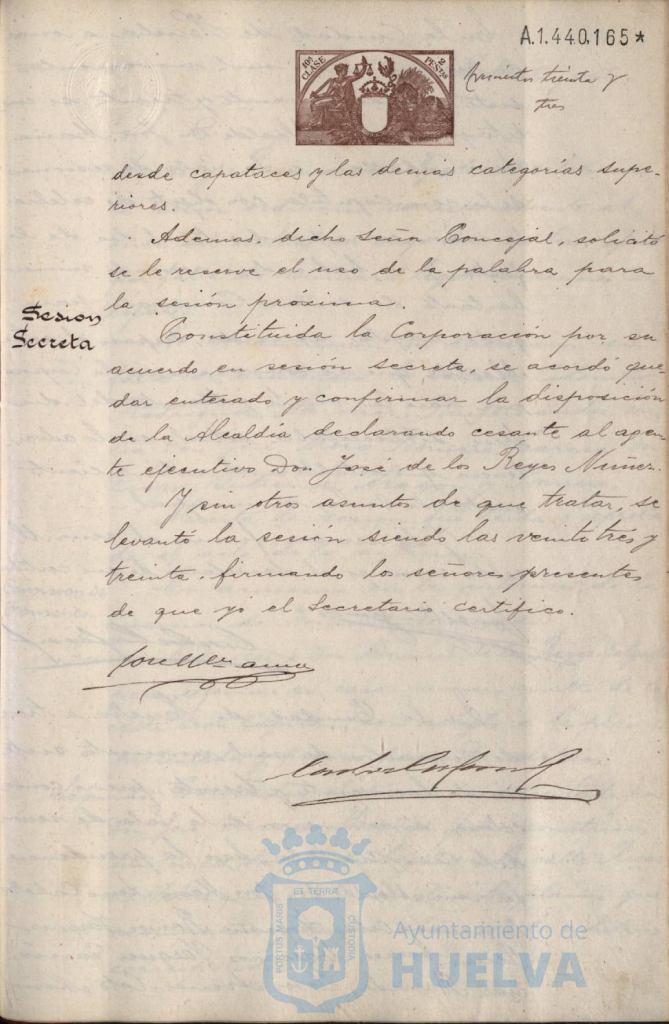 A.1.440.165*
10ª CLASE
2 PESTAS
treinta y
tres
desde capataces y las demás categorías supe-
riores.
Ademas, dicho señor Concejal, solicitó
se le reserve el uso de la palabra para
la sesión próxima.
Sesion
Secreta
Constituida la Corporación por su
acuerdo en sesión secreta, se acordó que-
dar enterado y confirmar la disposición
de la Alcaldía declarando cesante al agen-
te ejecutivo Don José de los Reyes Nuñez.
Y sin otros asuntos de que tratar, se
levantó la sesión siendo las veintitrés y
treinta, firmando los señores presentes
de que yo el Secretario certifico.
ET TERRÆ
PORTUS MARIS
CUSTODIA
Ayuntamiento de
HUELVA